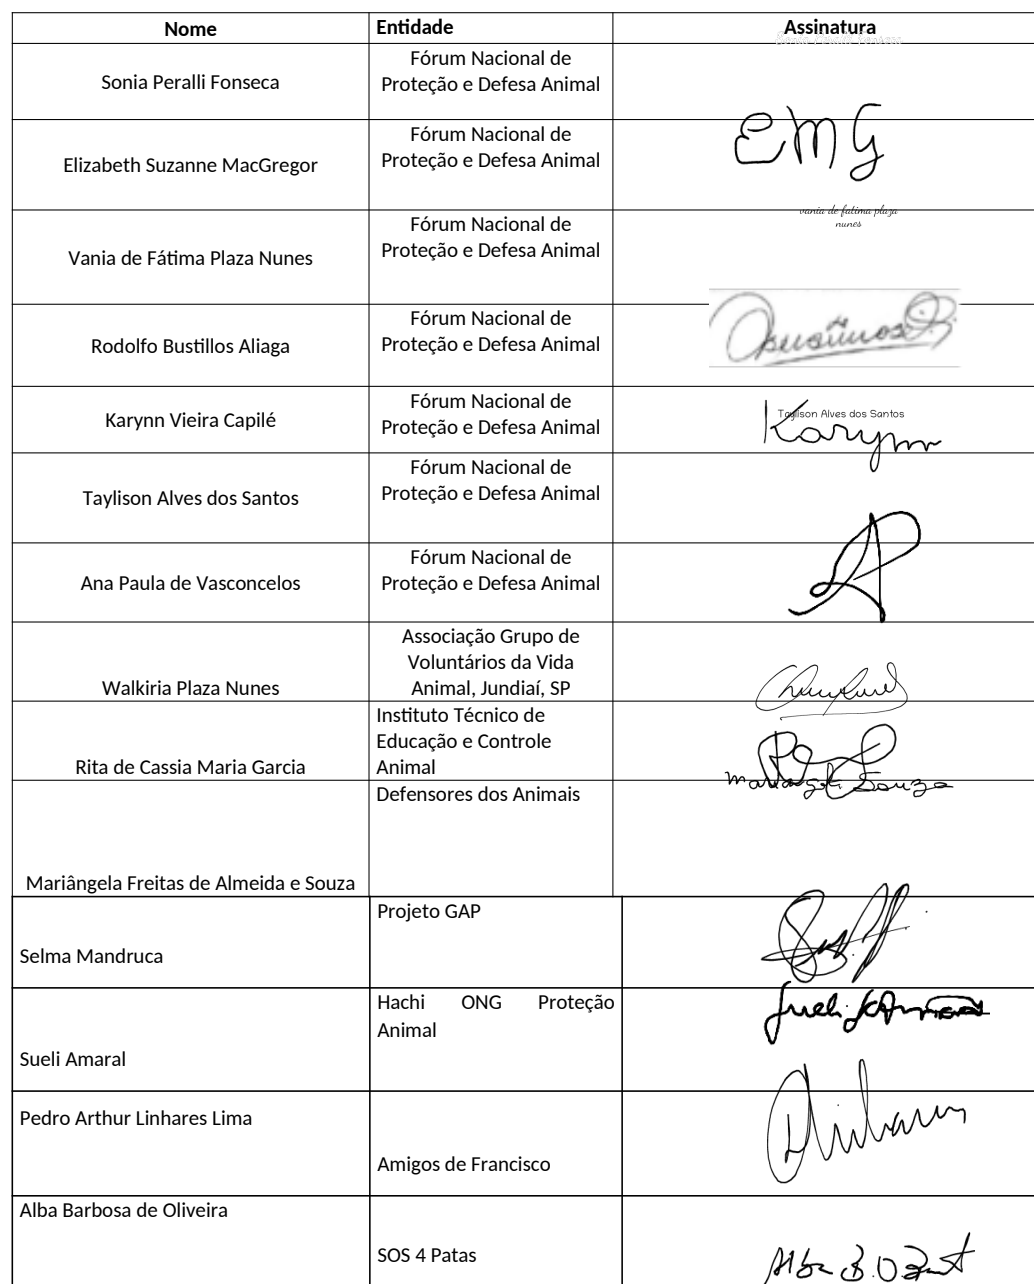 Nome Entidade Assinatura
Sonia Peralli Fonseca
Fórum Nacional de
Proteção e Defesa Animal
Sonia Peralli Fonseca
Elizabeth Suzanne MacGregor
Fórum Nacional de
Proteção e Defesa Animal
EMG
Vania de Fátima Plaza Nunes
Fórum Nacional de
Proteção e Defesa Animal
vania de fatima plaza
nunes
Rodolfo Bustillos Aliaga
Fórum Nacional de
Proteção e Defesa Animal
Karynn Vieira Capilé
Fórum Nacional de
Proteção e Defesa Animal
Taylison Alves dos Santos
Karynn
Taylison Alves dos Santos
Fórum Nacional de
Proteção e Defesa Animal
Ana Paula de Vasconcelos
Fórum Nacional de
Proteção e Defesa Animal
Walkiria Plaza Nunes
Associação Grupo de
Voluntários da Vida
Animal, Jundiaí, SP
Rita de Cassia Maria Garcia
Instituto Técnico de
Educação e Controle
Animal
Souza
Mariângela Freitas de Almeida e Souza
Defensores dos Animais
Selma Mandruca
Projeto GAP
Sueli Amaral
Hachi ONG Proteção
Animal
Sueli
Pedro Arthur Linhares Lima
Amigos de Francisco
Alba Barbosa de Oliveira
SOS 4 Patas
Alba B. O